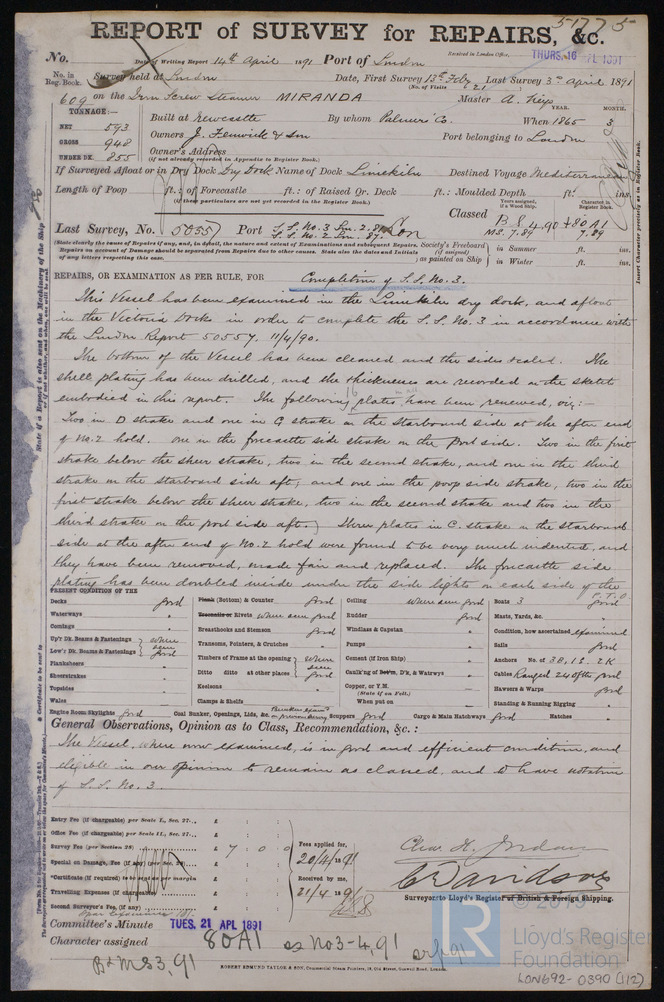 51775
REPORT of SURVEY for REPAIRS, &c.
No. Date of Writing Report 14th April 1891 Port of London Received in London Office, THURS. 16 APL 1891
No. in Reg. Book. Survey held at London Date, First Survey 13th Feby Last Survey 3rd April 1891
(No. of Visits 21)
609 on the Iron Screw Steamer MIRANDA Master A. Keys
TONNAGE:— YEAR. MONTH.
NET 593 Built at Newcastle By whom Palmers Co. When 1865 3
GROSS 948 Owners J. Fenwick & Son Port belonging to London
UNDER DK. 855 Owners' Address
(if not already recorded in Appendix to Register Book.)
If Surveyed Afloat or in Dry Dock Dry Dock Name of Dock Limekiln Destined Voyage Mediterranean
Length of Poop ft.: of Forecastle ft.: of Raised Qr. Deck ft.: Moulded Depth ft. ins.
(if them particulars are not yet recorded in the Register Book.)
Classed B.S 4.90 +80A1
MS. 7.89 7.89
Last Survey, No. 50557 Port S.S. No. 3 Lon
(State clearly the cause of Repairs if any, and, in detail, the nature and extent of Examinations and subsequent Repairs.
Repairs on account of Damage should be separated from Repairs due to other causes. State also the dates and initials
of any letters respecting this case.
Society's Freeboard (if assigned) as painted on Ship in Summer ft. ins.
in Winter ft. ins.
REPAIRS, OR EXAMINATION AS PER RULE, FOR Completion of S.S. No. 3.
This Vessel has been examined in the Limekiln dry dock, and afloat
in the Victoria Docks in order to complete the S.S. No. 3 in accordance with
the London Report 50557. 11/4/90.
The bottom of the Vessel has been cleaned and the sides scaled. The
shell plating has been drilled, and the thicknesses are recorded on the sketch
embodied in this report. The following 16 plates have been renewed, viz:—
Two in D strake and one in C strake on the Starboard side at the after end
of No. 2 hold. one in the forecastle side strake on the Port side. Two in the first
strake below the sheer strake, two in the second strake, and one in the third
strake on the starboard side aft, and one in the poop side strake, two in the
first strake below the sheer strake, two in the second strake and two in the
third strake on the port side aft. Three plates in C. strake on the starboard
side at the after end of No. 2 hold were found to be very much indented, and
they have been removed, made fair and replaced. The forecastle side
plating has been doubled inside under the side lights on each side of the
P.T.O
PRESENT CONDITION OF THE
Decks good Plank (Bottom) & Counter good Ceiling where seen good Boats 3 good
Waterways " Treenails or Rivets where seen good Rudder good Masts, Yards, &c. "
Comings " Breasthooks and Stemson good Windlass & Capstan " Condition, how ascertained examined
Up'r Dk. Beams & Fastenings where seen good Transoms, Pointers, & Crutches " Pumps " Sails good
Low'r Dk. Beams & Fastenings Timbers of Frame at the opening where seen good Cement (if Iron Ship) " Anchors No. of 3B, 1S, 2K
Planksheers " Ditto ditto at other places Caulk'ng of Bot'm, D'k, & Watrwys " Cables Ranged 240 fths good
Sheerstrakes " Keelsons " Copper, or Y.M. (State if on Felt.) Hawsers & Warps good
Topsides " Clamps & Shelfs When put on Standing & Running Rigging "
Wales "
Engine Room Skylights good Coal Bunker, Openings, Lids, &c. Scuppers good Cargo & Main Hatchways good Hatches "
General Observations, Opinion as to Class, Recommendation, &c. :
The Vessel, where now examined, is in good and efficient condition, and
eligible in our opinion to remain as classed, and to have notation
of S.S. No. 3.
Entry Fee (if chargeable) per Scale I., Sec. 27... £ : :
Office Fee (if chargeable) per Scale II., Sec. 27... £ : :
Survey Fee (per Section 28) £ 7 : 0 : 0
Special on Damage, Fee (if any) (per Sec. 28)... £ : :
*Certificate (if required) to be sent as per margin
Travelling Expenses (if chargeable) £ : :
Second Surveyor's Fee, (if any) £
Fees applied for, 20/4/1891
Received by me, 21/4/1891
Chas. H. Jordan
C Davidson
Surveyor to Lloyd's Register of British & Foreign Shipping.
Committee's Minute TUES. 21 APL 1891
Character assigned 80A1 ss No3-4,91
B&MS 3,91
ROBERT EDMUND TAYLOR & SON, Commercial Steam Printers, 19, Old Street, Goswell Road, London.
© 2019
LR Lloyd's Register
Foundation
LON692-0390 (1/2)